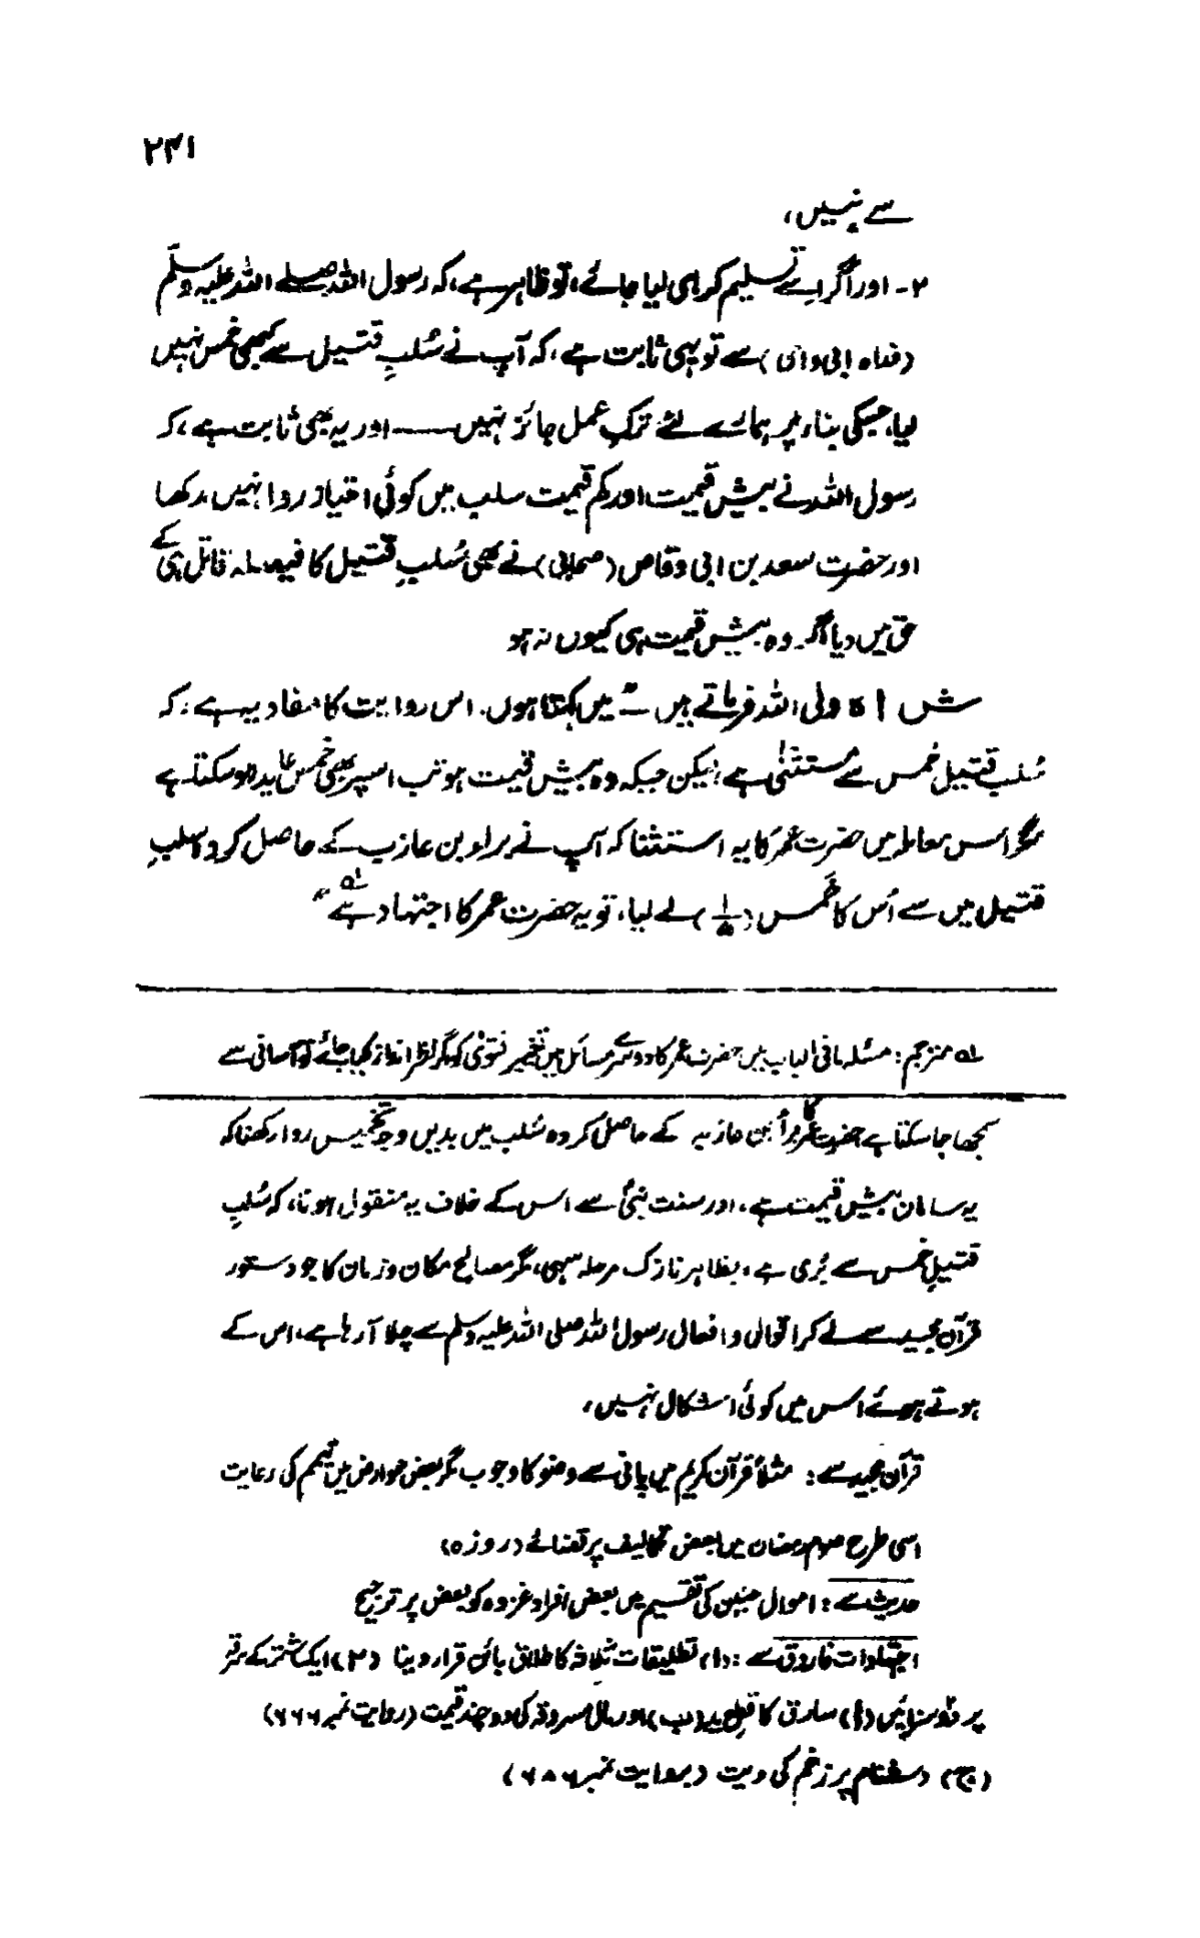 ۲۴۱
سے نہیں،
۲- اور اگر اسے تسلیم کر ہی لیا جائے، تو ظاہر ہے، کہ رسول اللہ صلے اللہ علیہ وسلّم
(فداہ ابی و امی) سے تو یہی ثابت ہے، کہ آپ نے سُلبِ قتیل سے کبھی خمس نہیں
لیا، جسکی بناء پر ہمارے لئے ترکِ عمل جائز نہیں —— اور یہ بھی ثابت ہے، کہ
رسول اللہ نے بیش قیمت اور کم قیمت سلب میں کوئی امتیاز روا نہیں رکھا
اور حضرت سعد بن ابی وقاص (صحابی) نے بھی سُلبِ قتیل کا فیصلہ قاتل ہی کے
حق میں دیا اگر وہ بیش قیمت ہی کیوں نہ ہو
شاہ ولی اللہ فرماتے ہیں :" میں کہتا ہوں. اس روایت کا مفاد یہ ہے، کہ
سُلب قتیل خمس سے مُستثنٰی ہے، لیکن جبکہ وہ بیش قیمت ہو تب اسپر بھی خمس عاید ہو سکتا ہے
مگر اس معاملہ میں حضرت عمر کا یہ استثنا کہ آپ نے براء بن عازب کے حاصل کردہ سلبِ
قتیل میں سے اُس کا خُمس (۱/۵) لے لیا، تو یہ حضرت عمر کا اجتہاد ہے ؎۱"
؎۱ مترجم: مسئلہ مافی الباب میں حضرت عمر کا دوسرے مسائل میں تغیر فتوٰی کو اگر نظر انداز کیا جائے تو آسانی سے
سمجھا جا سکتا ہے حضرت عمر کا براء بن عازب کے حاصل کردہ سُلب میں بدیں وجہ تخمیس روا رکھنا کہ
یہ سامان بیش قیمت ہے، اور سنت نبیؐ سے اس کے خلاف یہ منقول ہونا، کہ سُلبِ
قتیل خمس سے بُری ہے، بظاہر نازک مرحلہ سہی، مگر مصالح مکان و زمان کا جو دستور
قرآن مجید سے لے کر اقوال و افعال رسول اللہ صلی اللہ علیہ وسلم سے چلا آ رہا ہے، اس کے
ہوتے ہوئے اس میں کوئی اشکال نہیں،
قرآن مجید سے: مثلاً قرآن کریم میں پانی سے وضو کا وجوب مگر بعض عوارض میں تیمم کی رعایت
اسی طرح صوم رمضان میں بعض تکالیف پر قضائے (روزہ)
حدیث سے: اموال حنین کی تقسیم میں بعض افراد غزوہ کو بعض پر ترجیح
اجتہادات فاروق سے: (۱) تطلیقات ثلاثہ کا طلاق بائن قرار دینا (۲) ایک شتر کے سرقہ
پر دو سزائیں (ا) سارق کا قطع ید (ب) اور مال مسروقہ کی دو چند قیمت (روایت نمبر ۶۶۶)
(ج) دشنام پر زخم کی دیت (روایت نمبر ۶۸۶)